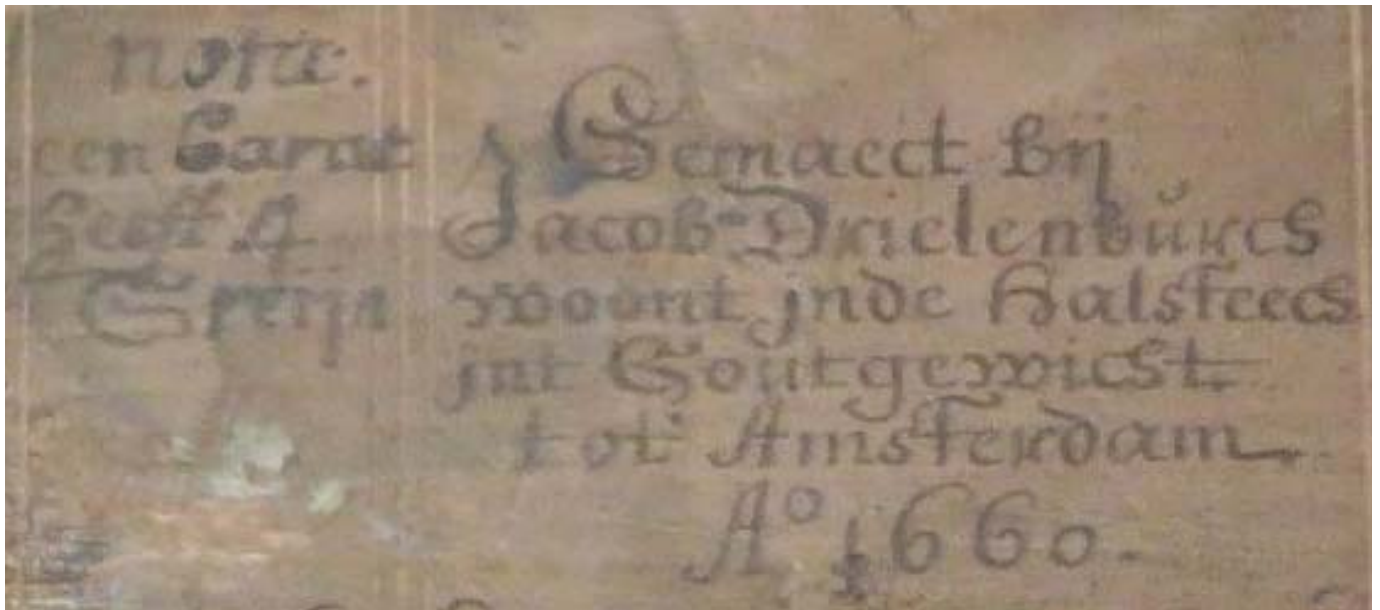 nota.
een Carat
heeft 4
Greijn
Gemaect bij
Jacob Drielenburcs
woont jnde Halsteech
jnt Goutgewicht
tot Amsterdam
Aº 1660.